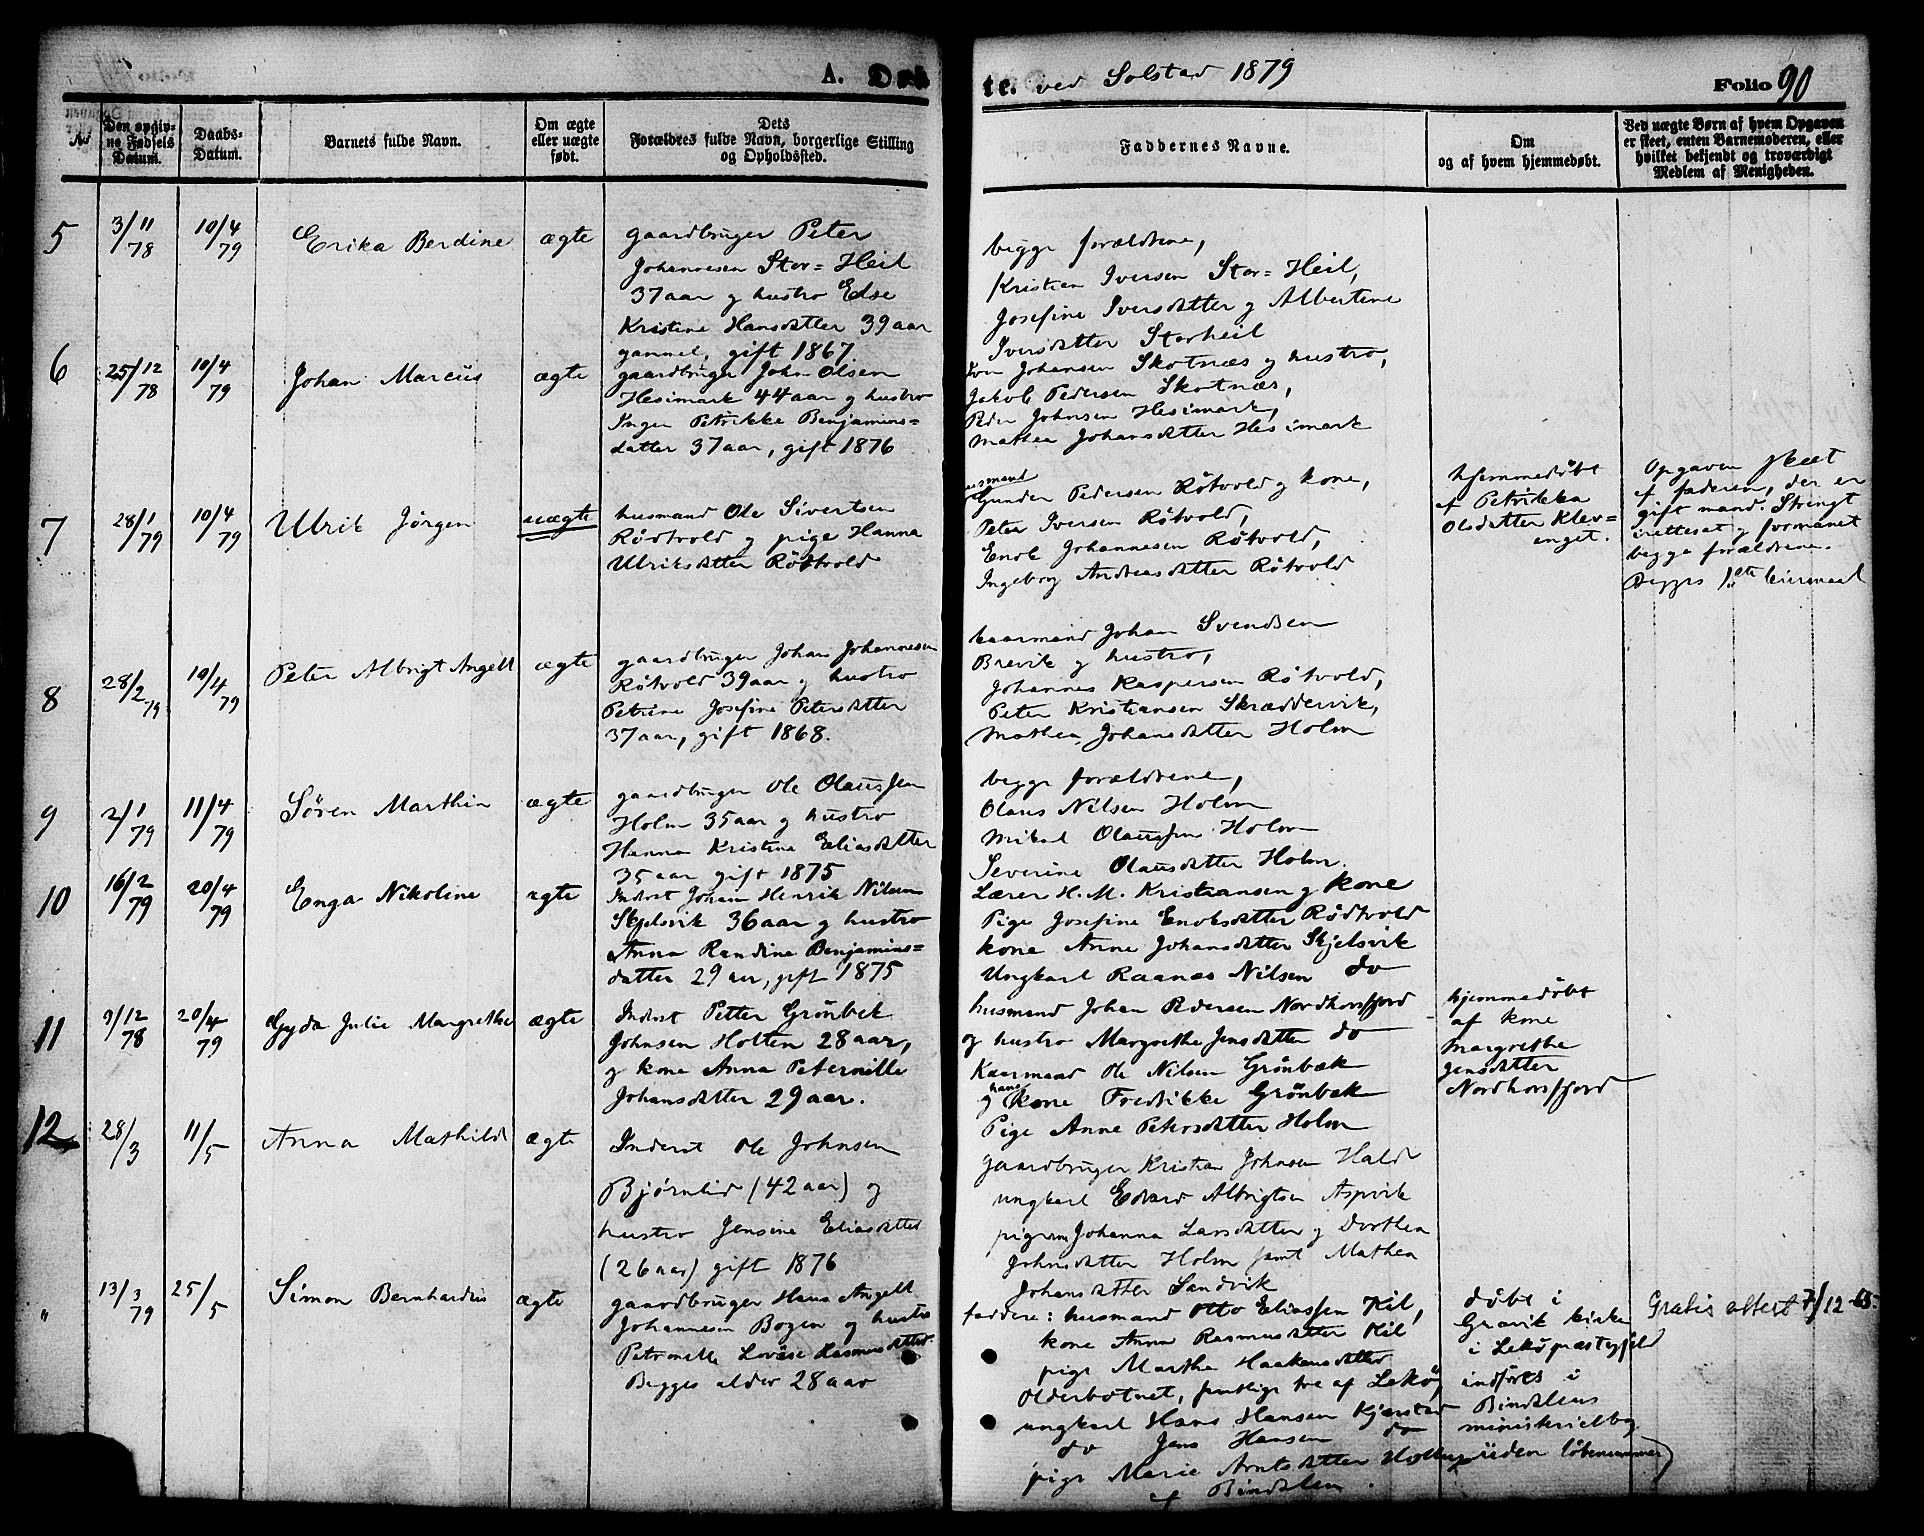 A. Døb
te. ved Solstad 1879
Folio 90
№
Den opgiv-
ne Fødsels
Datum.
Daabs-
Datum.
Barnets fulde Navn.
Om ægte
eller uægte
født.
Dets
Forældres fulde Navn, borgerlige Stilling
og Opholdssted.
Faddernes Navne.
Om
og af hvem hjemmedøbt.
Ved uægte Børn af hvem Opgaven
er skeet, enten Barnemoderen, eller
hvilket bekjendt og troværdigt
Medlem af Menigheden.
5
3/11
78
10/4
79
Erika Berdine
ægte
gaardbruger Peter
Johannesen Stor=Heil
37 aar og hustro Else
Kristine Hansdatter 39 aar
gammel, gift 1867.
begge forældrene,
Kristian Iversen Stor=Heil,
Josefine Iversdatter og Albertine
Iversdatter Storheil
6
25/12
78
10/4
79
Johan Marcus
ægte
gaardbruger John Olsen
Hesimark 44 aar og hustro
Inger Petrikke Benjamins=
datter 37 aar, gift 1876
Johansen Skotnæs og hustro,
Jakob Pedersen Skotnæs,
Peder Johnsen Hesimark,
Mathea Johansdatter Hesimark
7
28/1
79
10/4
79
Ulrik Jørgen
uægte
husmand Ole Sivertsen
Rødtvold og pige Hanna
Ulriksdatter Røtvold
husmand
Gunder Pedersen Røtvold og kone,
Peter Iversen Røtvold,
Enok Johannesen Røtvold,
Ingeborg Andreasdatter Røtvold
hjemmedøbt
af Petrikka
Olsdatter Klev=
enget.
Opgaven skeet
af faderen, der er
gift mand. Strengt
irettesat og formanet
begge forældrene.
Begges 1ste leiermaal
8
28/2
79
10/4
79
Peter Albrigt Angell
ægte
gaardbruger Johan Johannesen
Røtvold 39 aar og hustro
Petrine Josefine Petersdatter
37 aar, gift 1868.
kaarmand Johan Svendsen
Brevik og hustro,
Johannes Kaspersen Røtvold,
Peter Kristiansen Skræddervik,
Mathea Johansdatter Holm
9
2/1
79
11/4
79
Søren Marthin
ægte
gaardbruger Ole Olaussen
Holm 35 aar og hustro
Hanna Kristine Eliasdatter
35 aar gift 1875
begge forældrene,
Olaus Nilsen Holm
Mikal Olaussen Holm
Severine Olausdatter Holm.
10
16/2
79
20/4
79
Enga Nikoline
ægte
Inderst Johan Henrik Nilsen
Skjelsvik 36 aar og hustro
Anna Randine Benjamins=
datter 29 aar, gift 1875
Lærer H. M. Kristiansen og kone
Pige Josefine Enoksdatter Rødtvold
kone Anne Johansdatter Skjelsvik
Ungkarl Raanæs Nilsen do
11
9/12
78
20/4
79
Gyda Julie Margrethe
ægte
Inderst Petter Grønbek
Johnsen Holten 28 aar,
og kone Anna Peternille
Johansdatter 29 aar.
husmand Johan Pedersen Nordhorsfjord
og hustro Margrethe Jensdatter do
Kaarmand Ole Nilsen Grønbæk
og hans kone Fredrikke Grønbæk
Pige Anne Petersdatter Holm
hjemmedøbt
af kone
Margrethe
Jensdatter
Nordhorsfjord
12
28/3
11/5
Anna Mathilde
ægte
Inderst Ole Johnsen
Bjørnlid (42 aar) og
hustro Jensine Eliasdatter
(26 aar) gift 1876
gaardbruger Kristian Johnsen Hald
ungkarl Edvard Albrigtsen Aspvik
pigerne Johanna Larsdatter og Dorthea
Johnsdatter Holm samt Mathea
Johansdatter Sandvik
"
13/3
79
25/5
Simon Bernhardus
ægte
gaardbruger Hans Angell
Johannesen Bogen og hustro
Petronelle Lovise Rasmusdatter
Begges alder 28 aar
faddere: husmand Otto Eliassen Kil,
kone Anna Rasmusdatter Kil
pige Marthe Haakensdatter
Olderbotnet, samtlige tre af Lekø,
ungkarl Hans Hansen Kjærstad
do Jens Hansen do
pige Marie Arntsdatter
af Bindalen.
døbt i
Gravik kirke
i Lekø præstegjeld
indføres i
Bindalens
ministerialbog
uden løbenummer)
Gratis attest 7/12-65.